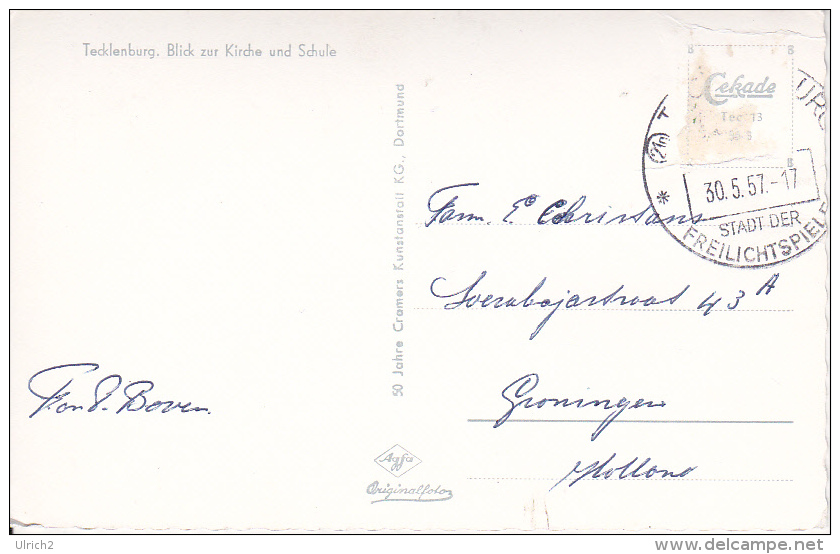 Tecklenburg. Blick zur Kirche und Schule
50 Jahre Cramers Kunstanstalt KG., Dortmund
Cekade
Tec 13
B
B
B
(21a) T
URG
30.5.57.-17
STADT DER
FREILICHTSPIELE
Fam. E. Christians
43 A
Groningen
Holland
Boven
Agfa
Originalfoto
Ulrich2
delcampe.net